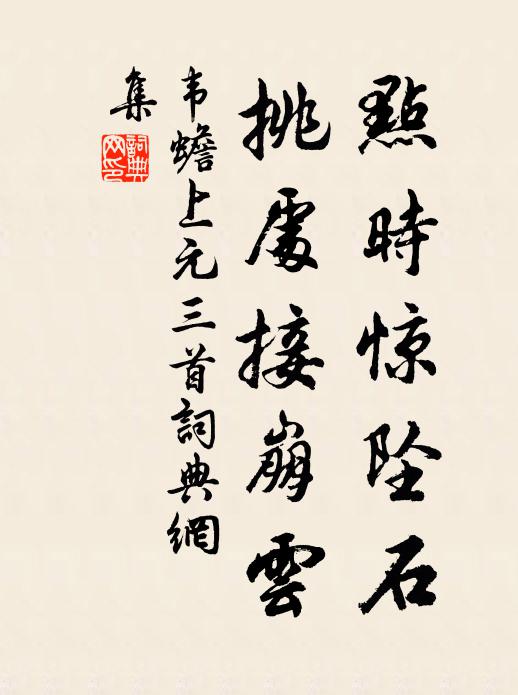 點時惊坠石
挑處接崩雲
韦蟾上元三首詞典網
集
詞典
网印